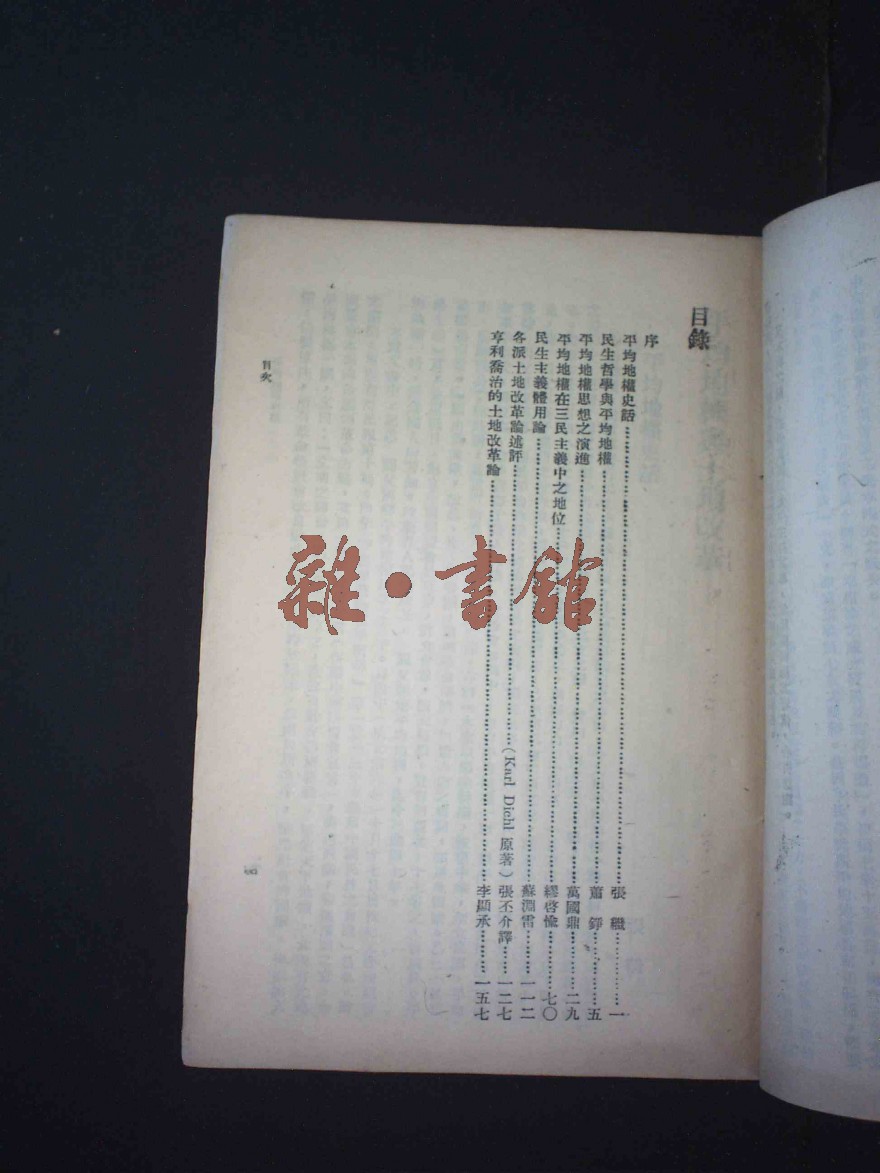 目錄
序
平均地權史話……張繼……一
民生哲學與平均地權……蕭錚……五
平均地權思想之演進……萬國鼎……二九
平均地權在三民主義中之地位……繆啓愉……七〇
民生主義體用論……蘇淵雷……一一二
各派土地改革論述評……(Karl Diehl原著)張丕介譯……一二七
亨利喬治的土地改革論……李顯承……一五七
目次
雜·書館